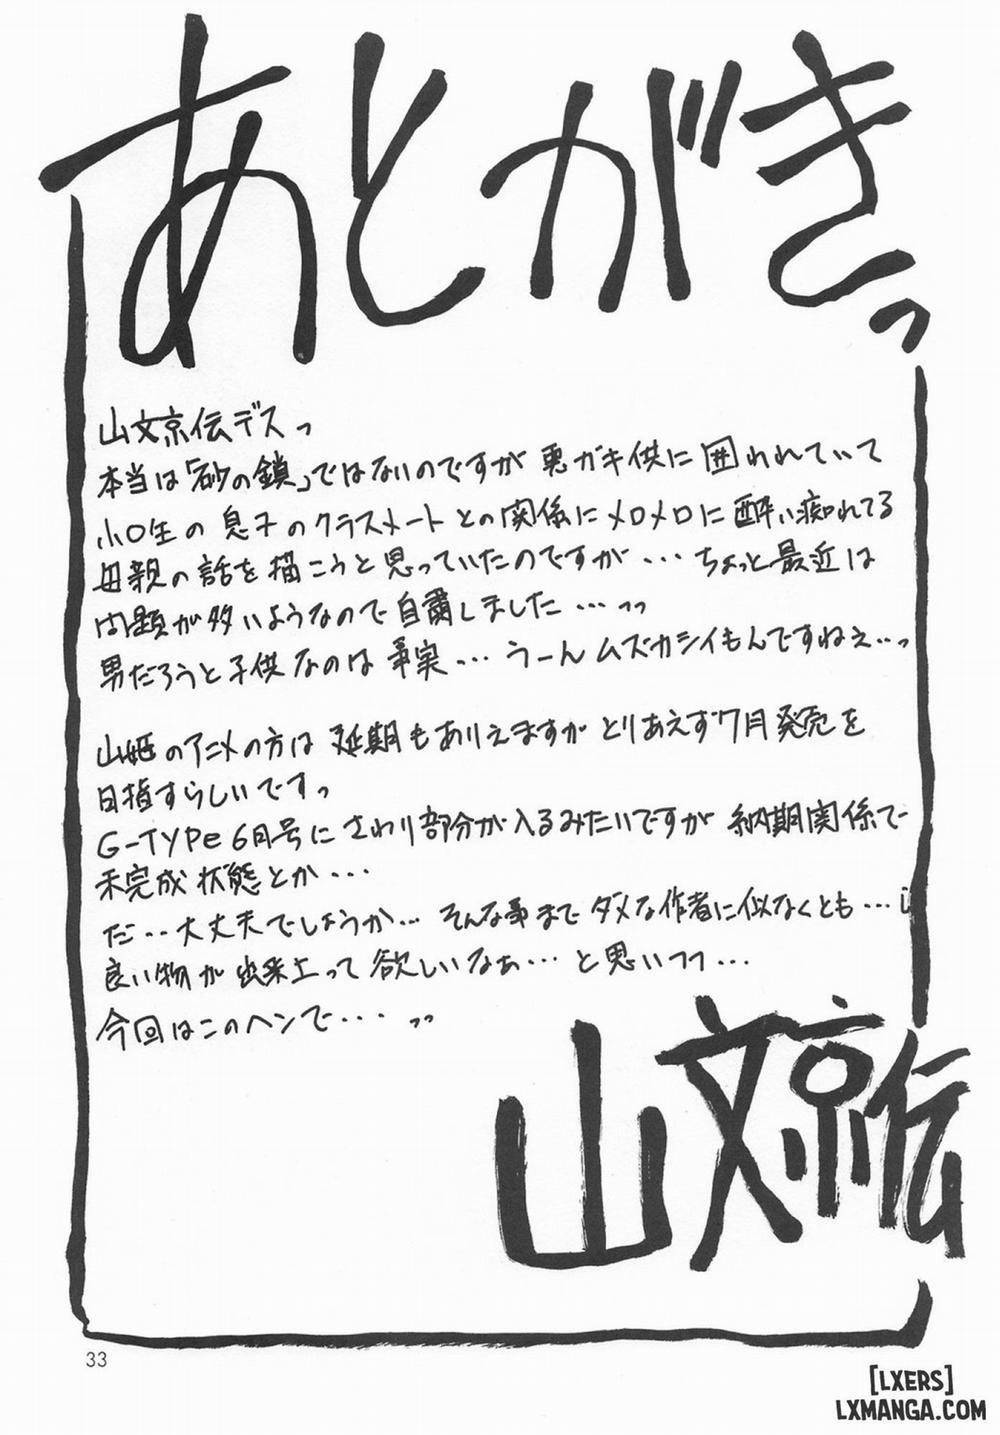 あとがきっ
山文京伝デスっ
本当は「砂の鎖」ではないのですが悪ガキ供に囲われていて
小〇生の息子のクラスメートとの関係にメロメロに酔い痴れてる
母親の話を描こうと思っていたのですが・・・ちょっと最近は
問題が多いようなので自粛しました・・・っっ
男だろうと子供なのは事実・・・うーんムズカシイもんですねぇ・・っ
山姫のアニメの方は延期もありえますがとりあえず7月発売を
目指すらしいですっ
G-TYPe6月号にさわり部分が入るみたいですが納期関係で
未完成状態とか・・・
だ・・大丈夫でしょうか・・・そんな事までダメな作者に似なくとも・・・い
良い物が出来上って欲しいなぁ・・・と思いつつ・・・
今回はこのヘンで・・・っっ
山文京伝
33
[LXERS]
LXMANGA.COM